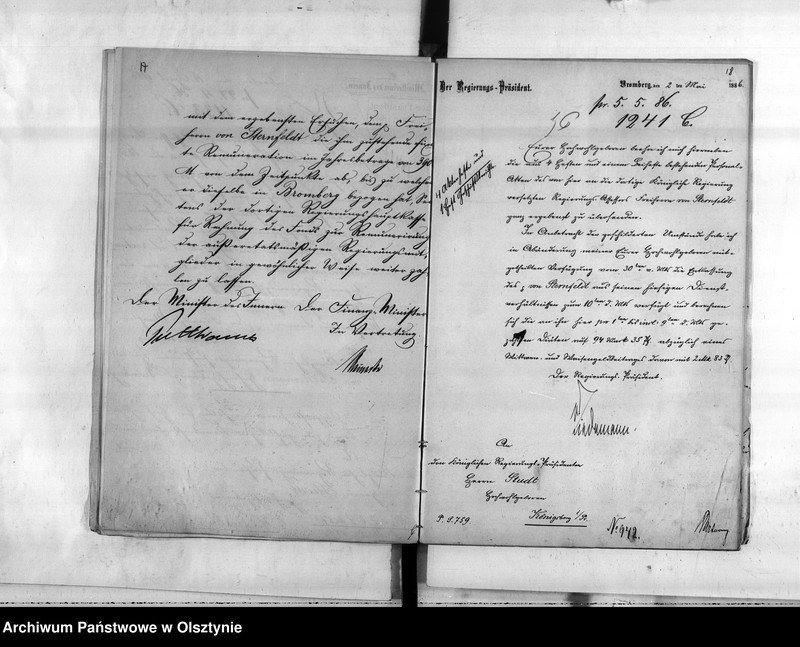 mit dem ergebensten Ersuchen, dem p. Frei-
herrn von Sternfeldt die ihm zustehende
te Remuneration im Jahresbetrage von
M von dem Zeitpunkte ab, bis zu welchem
er dieselbe in Bromberg bezogen hat, Sei-
tens der dortigen Regierungshauptkasse
für Rechnung des Fonds zur Remunerirung
der außeretatsmäßigen Regierungsmit-
glieder in gewöhnlicher Weise weiter zah-
len zu lassen.
Der Minister des Innern. Der Finanz-Minister
In Vertretung
Puttkamer
18
Der Regierungs-Präsident.
Bromberg, den 2 ten Mai 1886.
pr. 5. 5. 86.
1241 C.
Euer Hochwohlgeboren beehre ich mich hierneben
die aus 4 Heften und einem Beihefte bestehenden Personal-
Akten des von hier an die dortige Königliche Regierung
versetzten Regierungs-Assessors Freiherrn von Sternfeldt
ganz ergebenst zu übersenden.
In Anbetracht der geschilderten Umstände habe ich
in Abänderung meiner Euer Hochwohlgeboren mit-
getheilten Verfügung vom 30ten v. Mts die Entlassung
des p. von Sternfeldt aus seinen hiesigen Dienst-
verhältnissen zum 10ten d. Mts verfügt und berechnen
sich die an ihn hier pro 1ten bis incl. 9ten d. Mts ge-
zahlten Diäten auf 94 Mark 35 Pf. abzüglich eines
Wittwen- und Waisengeldbeitrages davon mit 2 Mk 83 Pf.
Der Regierungs-Präsident.
Tiedemann.
An
den Königlichen Regierungs-Präsidenten
Herrn Studt
Hochwohlgeboren
Königsberg i/Pr.
P. S. 759
No 942.
Archiwum Państwowe w Olsztynie